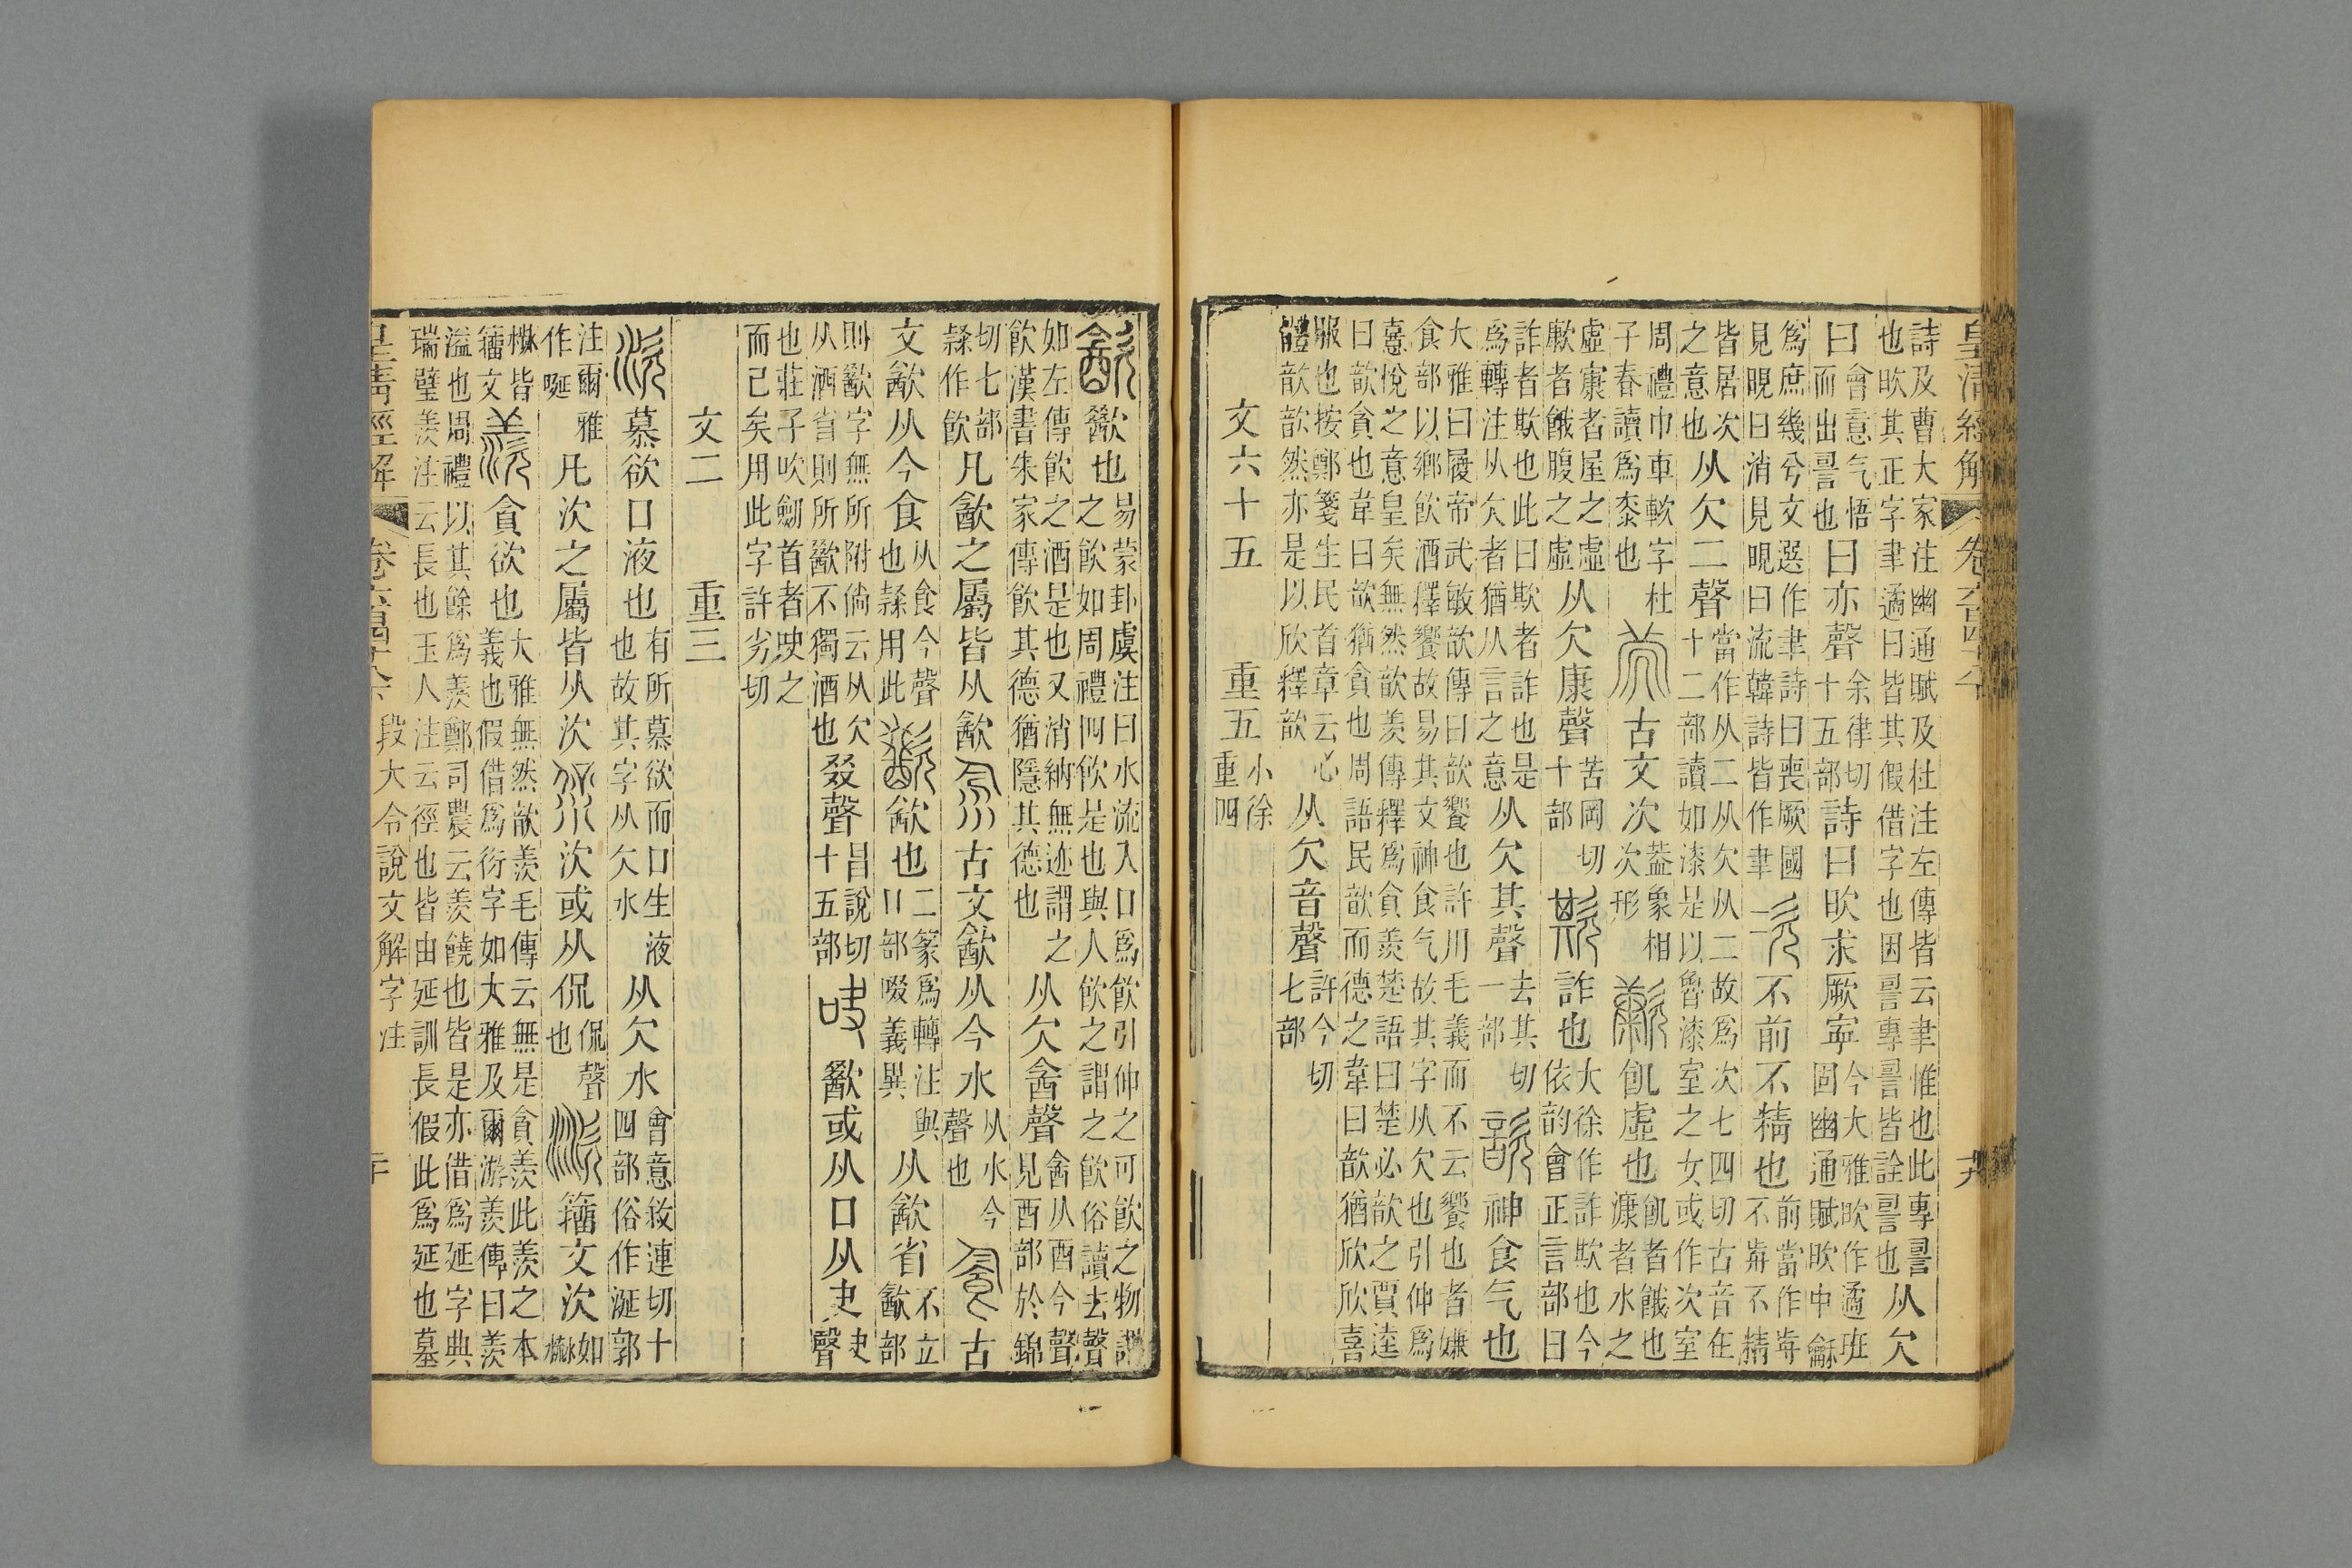 皇清經解 卷六百四十八 十九
詩及曹大家注幽通賦及杜注左傳皆云聿惟也此專䛐也㰟其正字聿遹曰皆其假借字也因䛐專䛐皆詮䛐也从欠
曰會意气悟而出䛐也曰亦聲余律切十五部詩曰㰟求厥寧今大雅㰟作遹班固幽通賦㰟中龢
爲庶幾兮文選作聿詩曰喪厥國見晛曰消見晛曰流韓詩皆作聿次不前不精也前當作歬不歬不精
皆居次之意也从欠二聲當作从二从欠从二故爲次七四切古音在十二部讀如漆是以魯漆室之女或作次室
周禮巾車軟字杜子春讀爲桼也古文次葢象相次形歉飢虛也飢者餓也漮者水之
虛㝩者屋之虛歉者餓腹之虛从欠康聲苦岡切十部欺詐也大徐作詐欺也今依韵會正言部曰
詐者欺也此曰欺者詐也是爲轉注从欠者猶从言之意从欠其聲去其切一部歆神食气也
大雅曰履帝武敏歆傳曰歆饗也許用毛義而不云饗也者嫌食部以鄉飲酒釋饗故易其文神食气故其字从欠也引伸爲
憙悅之意皇矣無然歆羨傳釋爲貪羨楚語曰楚必歆之賈逵曰歆貪也韋曰歆猶貪也周語民歆而德之韋曰歆猶欣欣喜
服也按鄭箋生民首章云心體歆歆然亦是以欣釋歆从欠音聲許今切七部
文六十五 重五小徐重四
㱃歠也易蒙卦虞注曰水流入口爲飲引伸之可飲之物謂之飲如周禮四飲是也與人飲之謂之飲俗讀去聲
如左傳飲之酒是也又消納無迹謂之飲漢書朱家傳飲其德猶隱其德也从欠酓聲酓从酉今聲見酉部於錦
切七部隸作飲凡㱃之屬皆从㱃古文㱃从今水从水今聲也古
文㱃从今食从食今聲也隸用此歠㱃也二篆爲轉注與口部啜義異从㱃省不立㱃部
則歠字無所附倘云从欠从酒省則所歠不獨酒也叕聲昌說切十五部吷歠或从口从夬夬聲
也莊子吹劒首者吷之而已矣用此字許劣切
文二 重三
㳄慕欲口液也有所慕欲而口生液也故其字从欠水从欠水會意敘連切十四部俗作涎郭
注爾雅作唌凡㳄之屬皆从㳄㳄或从侃侃聲也籒文㳄如
㰈皆籒文羨貪欲也大雅無然歆羨毛傳云無是貪羨此羨之本義也假借爲衍字如大雅及爾游羨傳曰羨
溢也周禮以其餘爲羨鄭司農云羨饒也皆是亦借爲延字典瑞璧羨注云長也玉人注云徑也皆由延訓長假此爲延也墓
皇清經解 卷六百四十八 段大令說文解字注 二十